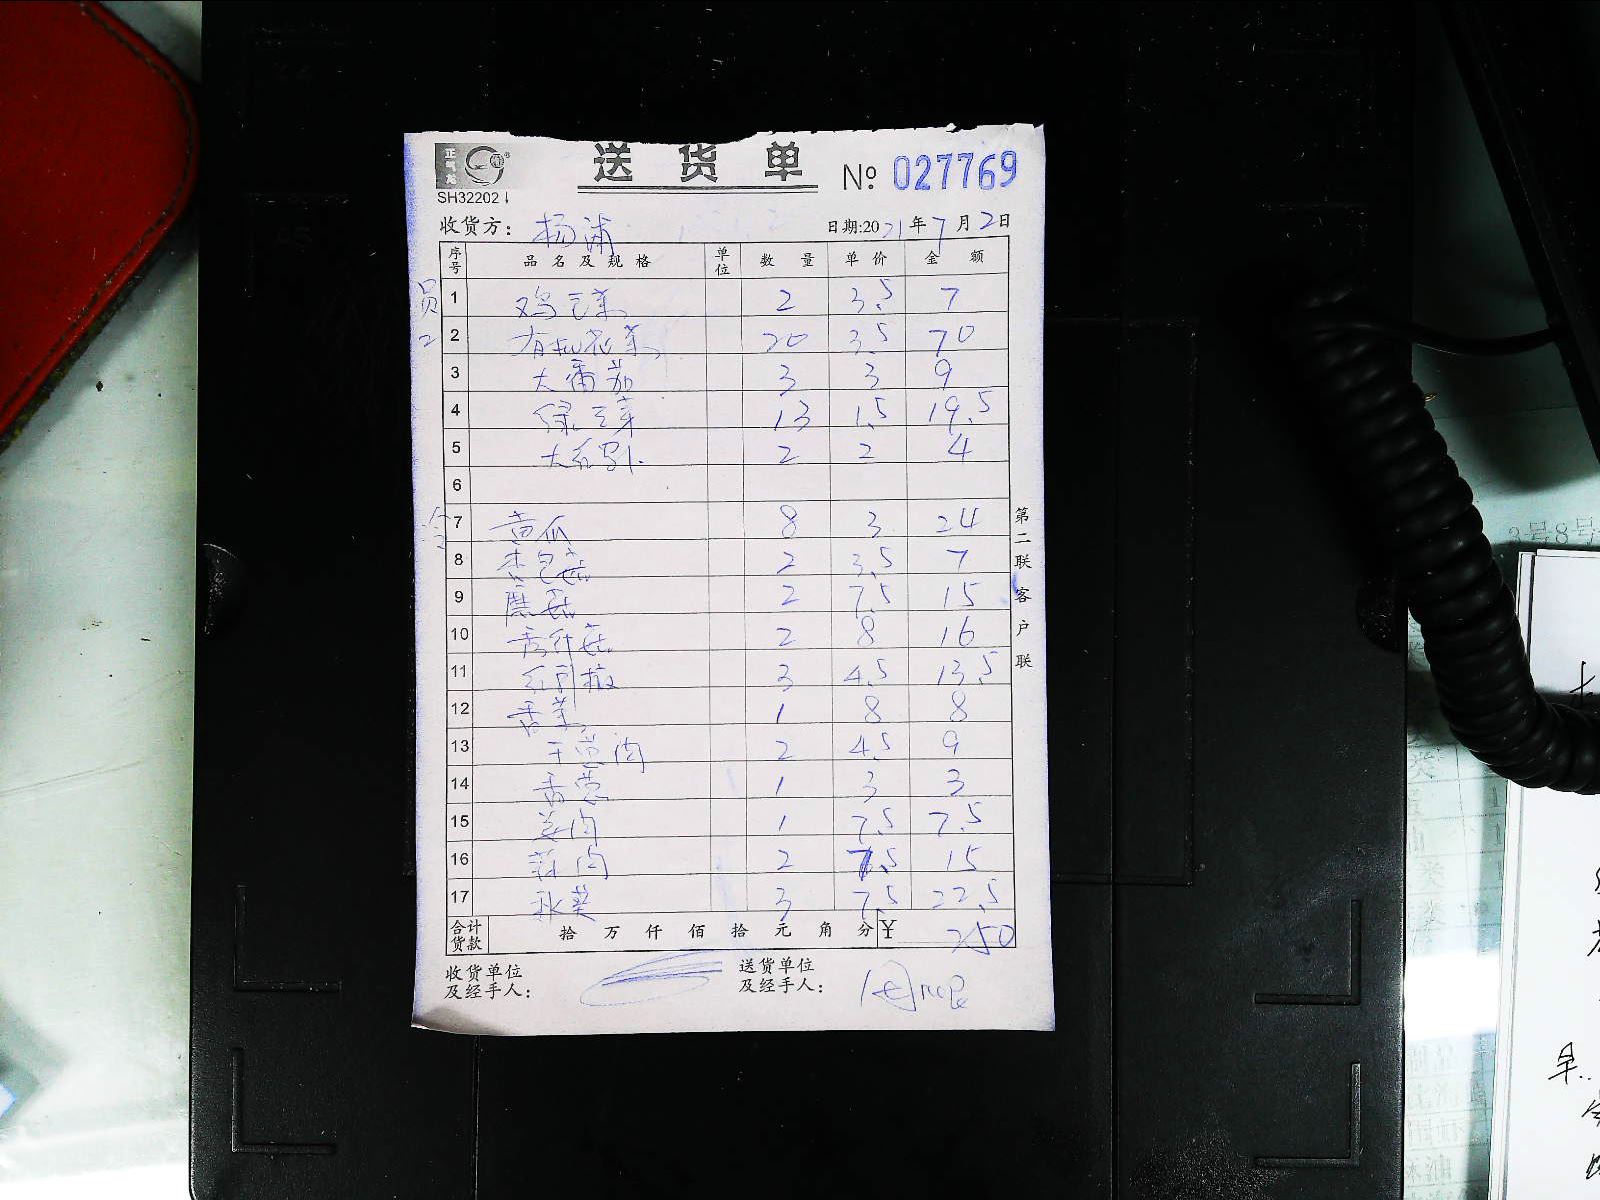 正气元
送货单 № 027769
SH32202
收货方： 杨浦 日期:2021年7月2日
序号 品名及规格 单位 数量 单价 金额
员工
1 鸡毛菜 2 3.5 7
2 有机花菜 20 3.5 70
3 大番茄 3 3 9
4 绿豆芽 13 1.5 19.5
5 大红萝卜 2 2 4
6
7 黄瓜 8 3 24
8 杏包菇 2 3.5 7
9 蘑菇 2 7.5 15
10 秀珍菇 2 8 16
11 红圆椒 3 4.5 13.5
12 香菜 1 8 8
13 干葱肉 2 4.5 9
14 香葱 1 3 3
15 姜肉 1 7.5 7.5
16 蒜肉 2 7.5 15
17 秋葵 3 7.5 22.5
合计货款 拾 万 仟 佰 拾 元 角 分 ¥ 250
收货单位及经手人：
送货单位及经手人：
第二联 客户联